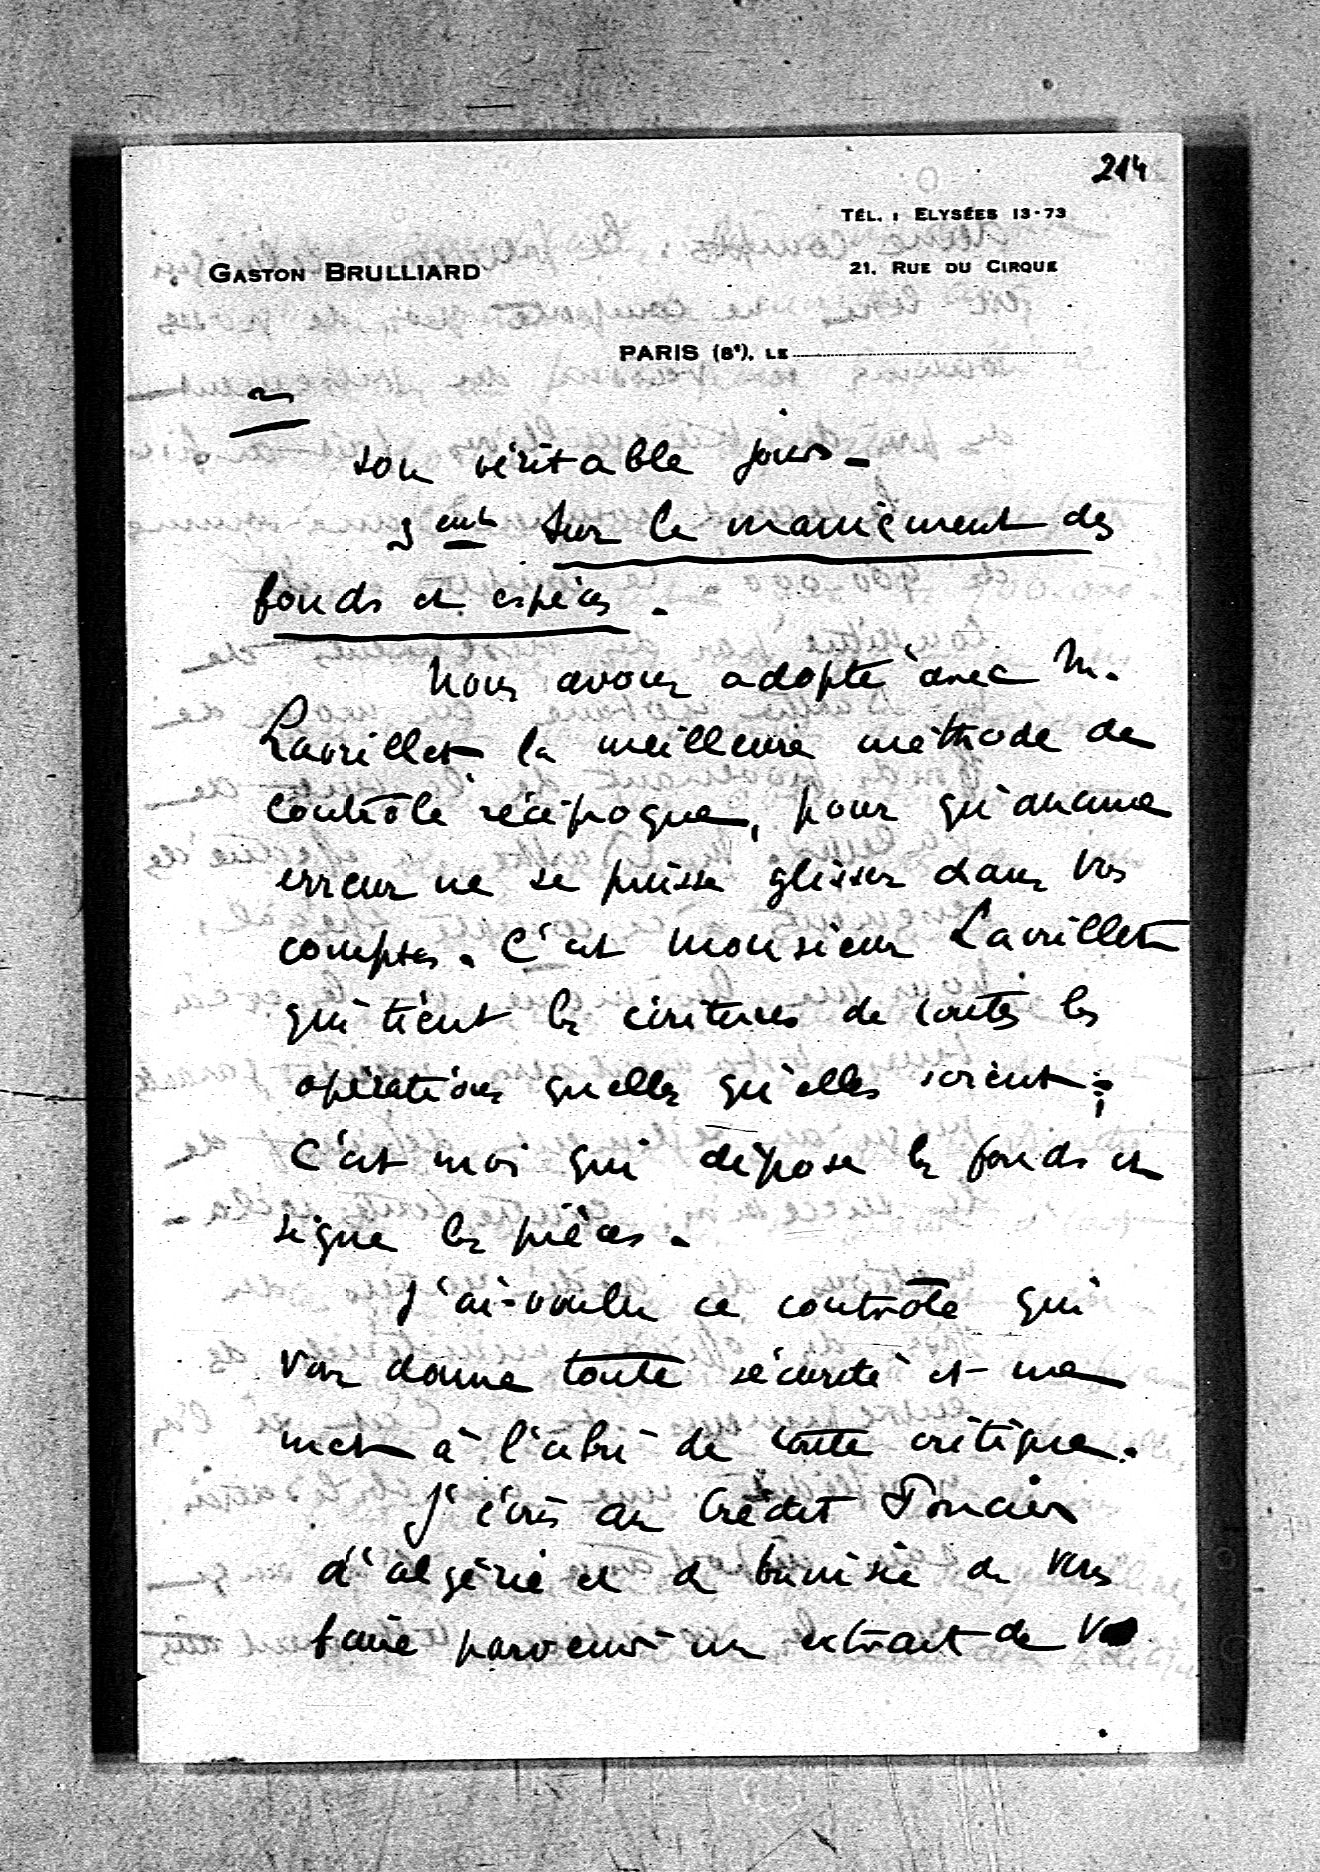 214
TÉL. : ELYSÉES 13-73
GASTON BRULLIARD
21, RUE DU CIRQUE
PARIS (8e), LE
son véritable jour.
3ent Sur le maniement des
fonds et espèces.
Nous avons adopté avec M.
Lavrillet la meilleure méthode de
contrôle réciproque, pour qu'aucune
erreur ne se puisse glisser dans vos
comptes. C'est Monsieur Lavrillet
qui tient les écritures de toutes les
opérations quelles qu'elles soient;
c'est moi qui dépose les fonds et
signe les pièces.
J'ai voulu ce contrôle qui
vous donne toute sécurité et me
met à l'abri de toute critique.
J'écris au Crédit Foncier
d'Algérie et de Tunisie de vous
faire parvenir un extrait de vos